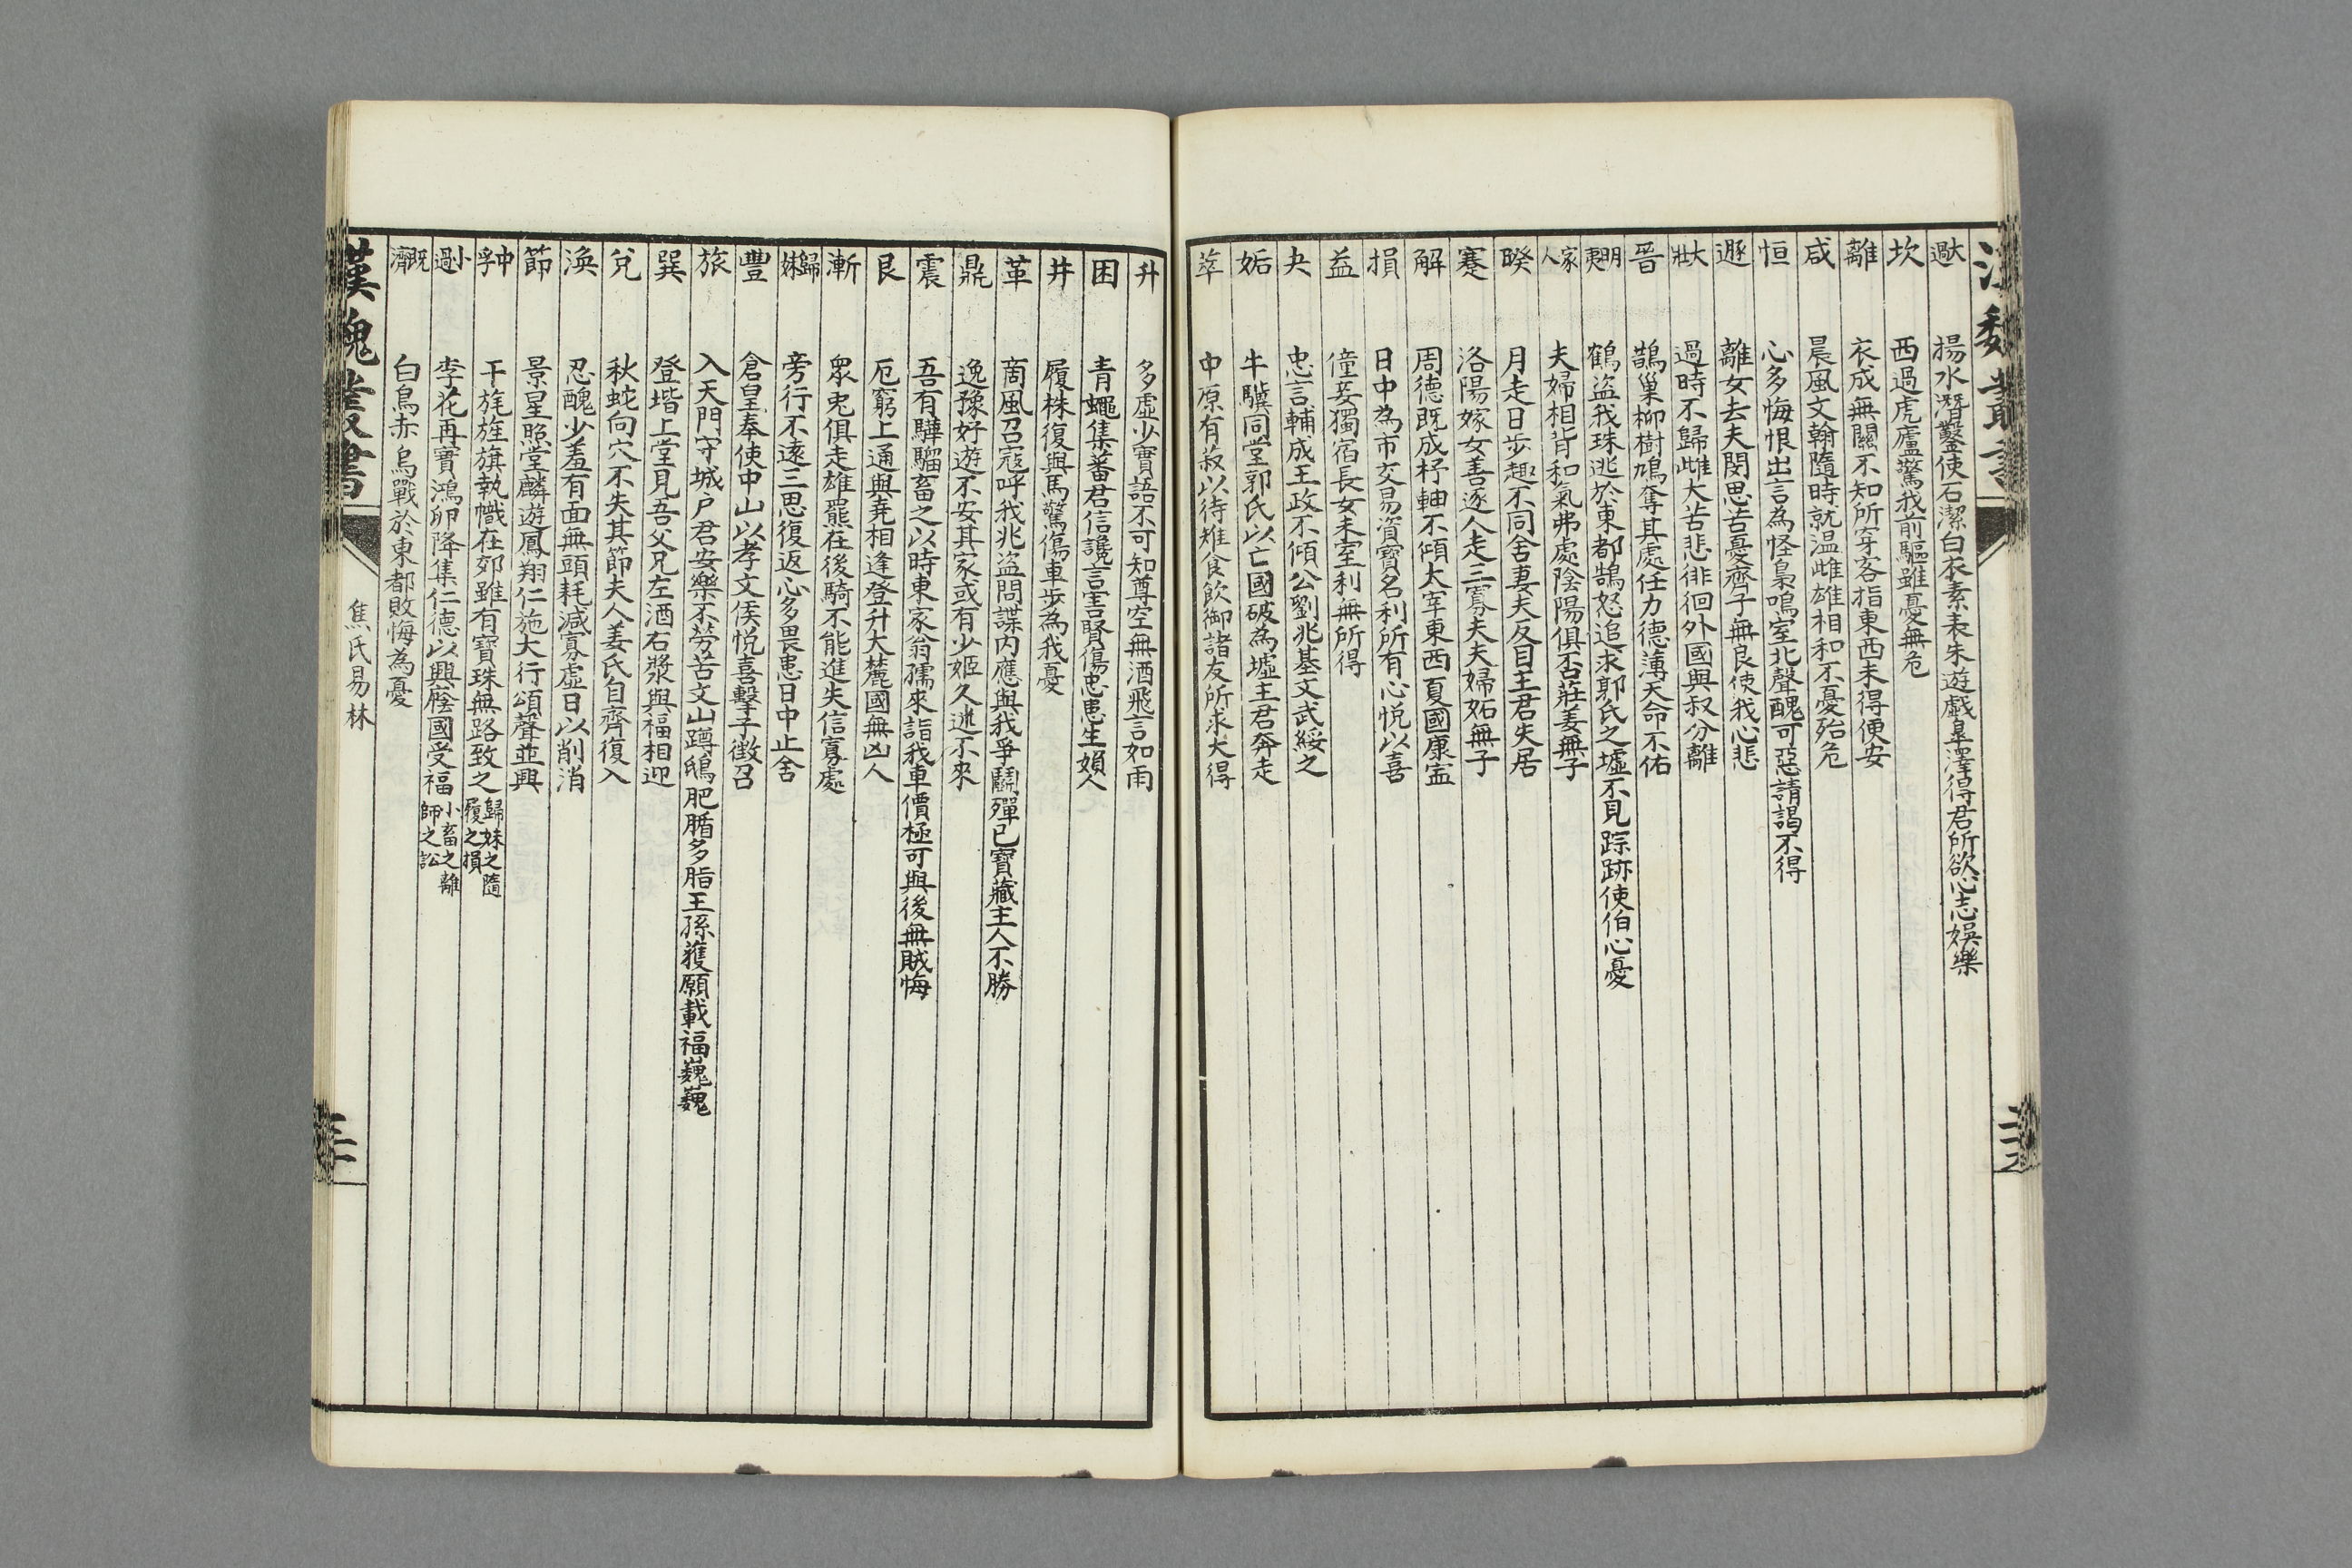 漢魏叢書
大過 揚水潛鑿使石潔白衣素表朱遊戲皋澤得君所欲心志娛樂
坎 西過虎廬驚我前驅雖憂無危
離 衣成無關不知所穿客指東西未得便安
咸 晨風文翰隨時就温雌雄相和不憂殆危
恒 心多悔恨出言為怪梟鳴室北聲醜可惡請謁不得
遯 離女去夫閔思苦憂齊子無良使我心悲
大壯 過時不歸雌大苦悲徘徊外國與叔分離
晉 鵲巢柳樹鳩奪其處任力德薄天命不佑
明夷 鶴盜我珠逃於東都鵠怒追求郭氏之墟不見踪跡使伯心憂
家人 夫婦相背和氣弗處陰陽俱否莊姜無子
睽 月走日步趣不同舍妻夫反目主君失居
蹇 洛陽嫁女善逐人走三寡夫夫婦妬無子
解 周德既成杼軸不傾太宰東西夏國康寍
損 日中為市交易資寶名利所有心悅以喜
益 僮妾獨宿長女未室利無所得
夬 忠言輔成王政不傾公劉兆基文武綏之
姤 牛驥同堂郭氏以亡國破為墟主君奔走
萃 中原有菽以待雉食飲御諸友所求大得
升 多虛少實語不可知尊空無酒飛言如雨
困 青蠅集蕃君信讒言害賢傷忠患生婦人
井 履株復輿馬驚傷車步為我憂
革 商風召寇呼我兆盜問諜内應與我爭鬭殫已寶藏主人不勝
鼎 逸豫好遊不安其家或有少姬久迷不來
震 吾有驊騮畜之以時東家翁孺來詣我車價極可與後無賊悔
艮 厄窮上通與堯相逢登升大麓國無凶人
漸 眾兎俱走雄羆在後騎不能進失信寡處
歸妹 旁行不遠三思復返心多畏患日中止舍
豐 倉皇奉使中山以孝文侯悅喜擊子徵召
旅 入天門守城戸君安樂不勞苦文山蹲鴟肥腯多脂王孫獲願載福巍巍
巽 登堦上堂見吾父兄左酒右漿與福相迎
兌 秋蛇向穴不失其節夫人姜氏自齊復入
渙 忍醜少羞有面無頭耗減寡虛日以削消
節 景星照堂麟遊鳳翔仁施大行頌聲並興
中孚 干旄旌旗執幟在郊雖有寶珠無路致之 歸妹之隨 履之損
小過 李花再實鴻卵降集仁德以興廕國受福 小畜之離 師之訟
既濟 白鳥赤烏戰於東都敗悔為憂
漢魏叢書 焦氏易林